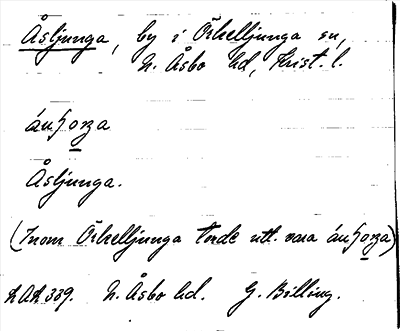 Åsljunga, by i Örkelljunga sn,
N. Åsbo hd, Krist. l.
Åsljunga.
(Inom Örkelljunga torde utt. vara
AK 339. N. Åsbo hd. G. Billing.